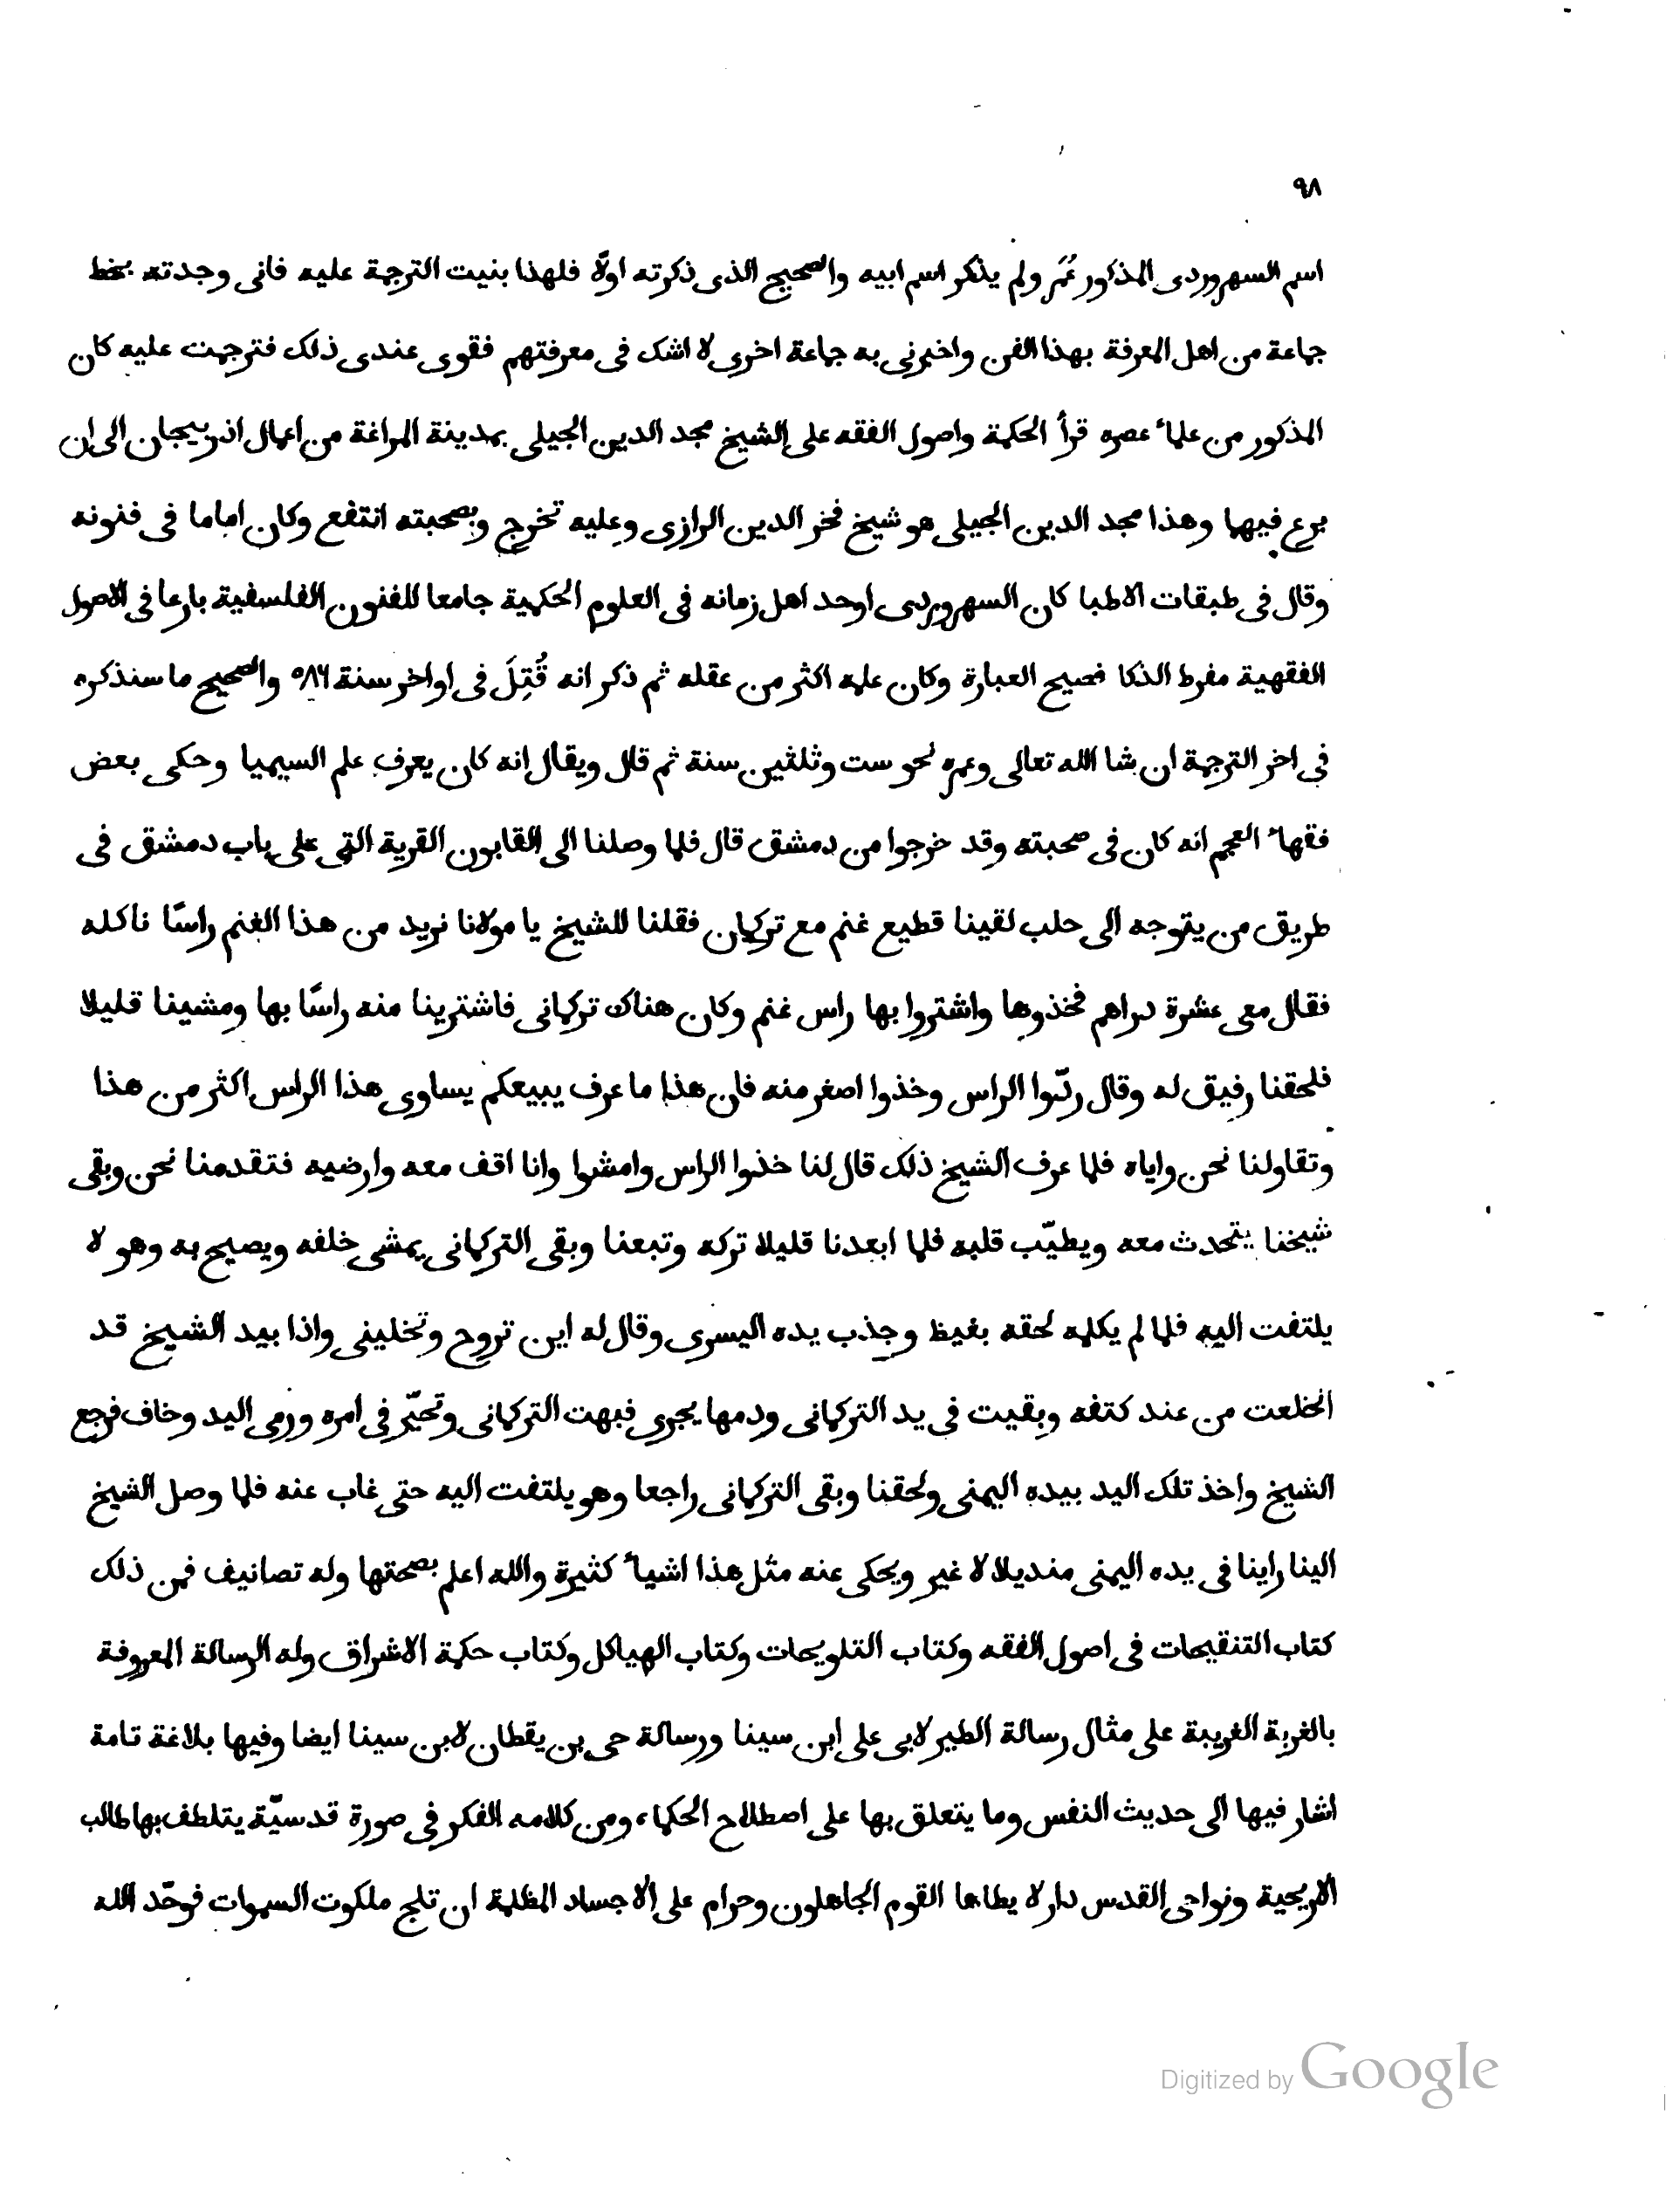 ٩٨
اسم السهروردى المذكور عُمَر ولم يذكر اسم ابيه والصحيح الذى ذكرته اولّا فلهذا بنيت الترجمة عليه فانى وجدته بخط
جماعة من اهل المعرفة بهذا الفن واخبرنى به جماعة اخرى لا اشك فى معرفتهم فقوى عندى ذلك فترجمت عليه كان
المذكور من علماء عصره قرأ الحكمة واصول الفقه على الشيخ مجد الدين الجيلى بمدينة المراغة من اعمال اذربيجان الى ان
برع فيهما وهذا مجد الدين الجيلى هو شيخ فخر الدين الرازى وعليه تخرج وبصحبته انتفع وكان اماما فى فنونه
وقال فى طبقات الاطبا كان السهروردى اوحد اهل زمانه فى العلوم الحكمية جامعا للفنون الفلسفية بارعا فى الاصول
الفقهية مفرط الذكا فصيح العبارة وكان علمه اكثر من عقله ثم ذكر انه قُتِلَ فى اواخر سنة ٥٨٦ والصحيح ما سنذكره
فى اخر الترجمة ان شا الله تعالى وعمره نحو ست وثلثين سنة ثم قال ويقال انه كان يعرف علم السيميا وحكى بعض
فقهاء العجم انه كان فى صحبته وقد خرجوا من دمشق قال فلما وصلنا الى القابون القرية التى على باب دمشق فى
طريق من يتوجه الى حلب لقينا قطيع غنم مع تركمان فقلنا للشيخ يا مولانا نريد من هذا الغنم راسًا ناكله
فقال معى عشرة دراهم فخذوها واشتروا بها راس غنم وكان هناك تركمانى فاشترينا منه راسًا بها ومشينا قليلا
فلحقنا رفيق له وقال ردّوا الراس وخذوا اصغر منه فان هذا ما عرف يبيعكم يساوى هذا الراس اكثر من هذا
وتقاولنا نحن واياه فلما عرف الشيخ ذلك قال لنا خذوا الراس وامشوا وانا اقف معه وارضيه فتقدمنا نحن وبقى
شيخنا يتحدث معه ويطيّب قلبه فلما ابعدنا قليلا تركه وتبعنا وبقى التركمانى يمشى خلفه ويصيح به وهو لا
يلتفت اليه فلما لم يكلمه لحقه بغيظ وجذب يده اليسرى وقال له اين تروح وتخلينى واذا بيد الشيخ قد
انخلعت من عند كتفه وبقيت فى يد التركمانى ودمها يجرى فبهت التركمانى وتحيّر فى امره ورمى اليد وخاف فرجع
الشيخ واخذ تلك اليد بيده اليمنى ولحقنا وبقى التركمانى راجعا وهو يلتفت اليه حتى غاب عنه فلما وصل الشيخ
الينا راينا فى يده اليمنى منديلا لا غير ويحكى عنه مثل هذا اشياء كثيرة والله اعلم بصحتها وله تصانيف فمن ذلك
كتاب التنقيحات فى اصول الفقه وكتاب التلويحات وكتاب الهياكل وكتاب حكمة الاشراق وله الرسالة المعروفة
بالغربة الغريبة على مثال رسالة الطير لابى على ابن سينا ورسالة حى بن يقظان لابن سينا ايضا وفيها بلاغة تامة
اشار فيها الى حديث النفس وما يتعلق بها على اصطلاح الحكماء ومن كلامه الفكر فى صورة قدسيّة يتلطف بها طالب
الاريحية ونواحى القدس دار لا يطاها القوم الجاهلون وحرام على الاجساد المظلمة ان تلج ملكوت السموات فوحّد الله
Digitized by Google